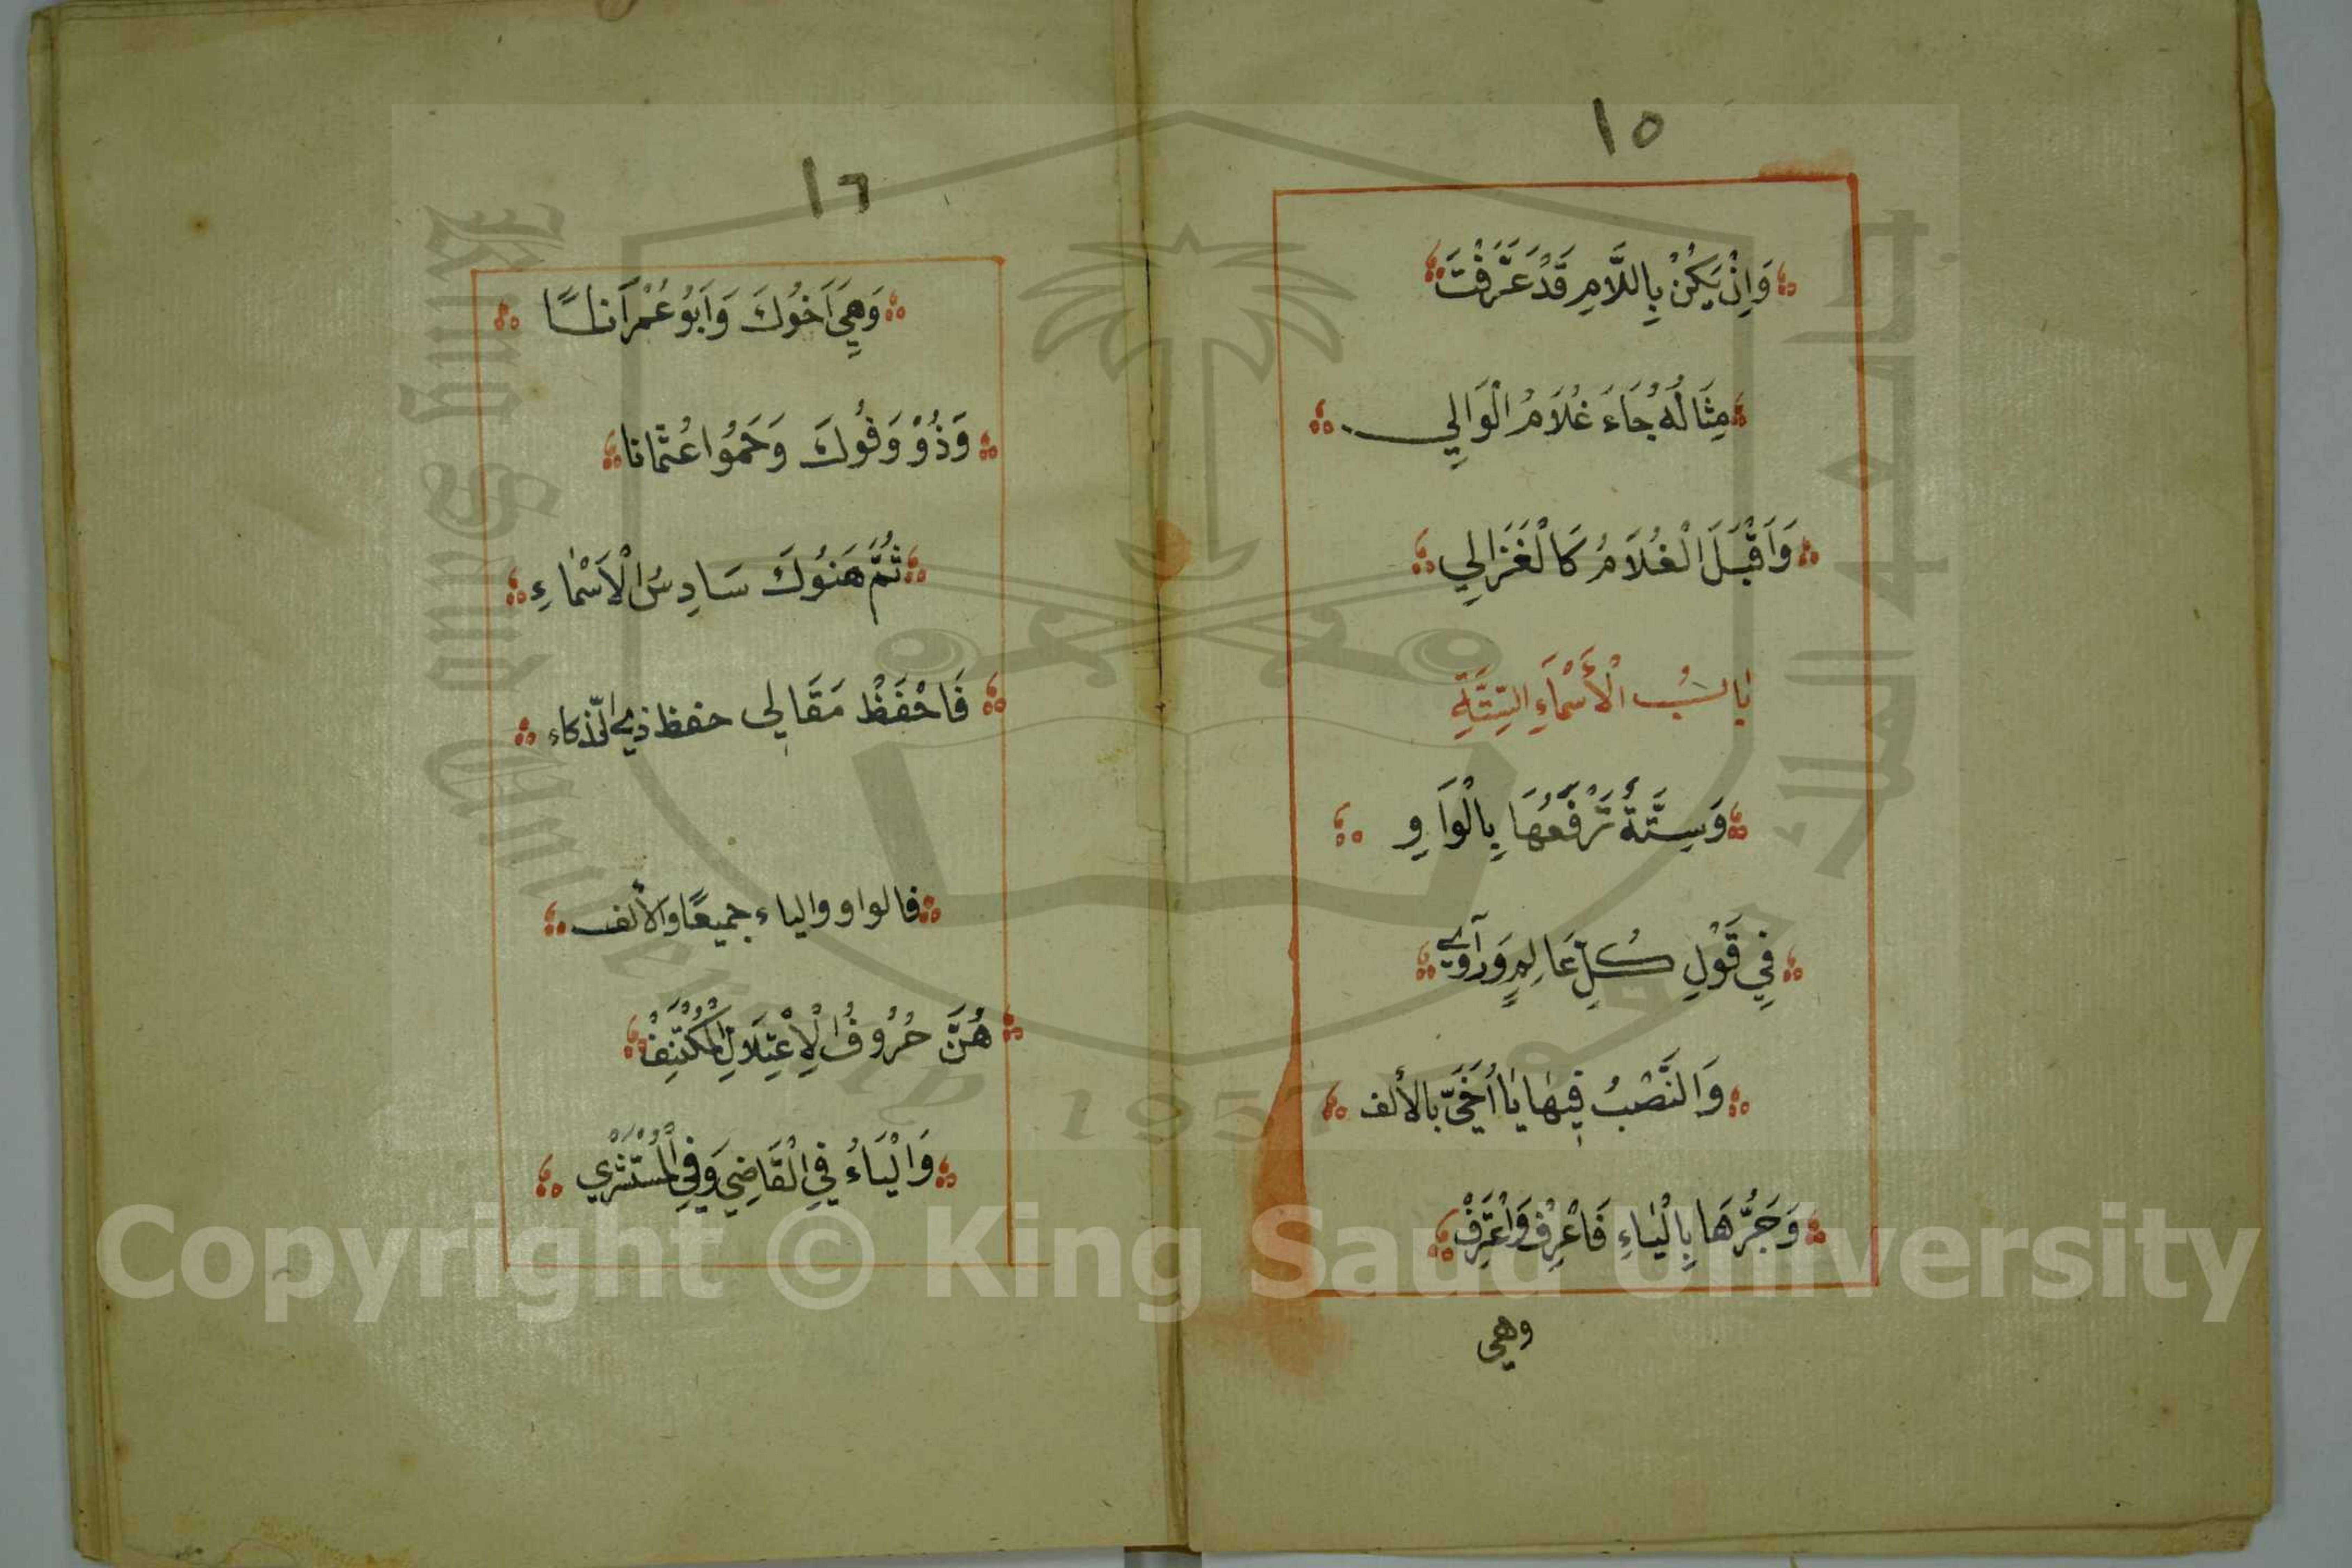 ١٥
وَاِنْ يَكُنْ بِاللَّامِ قَدْ عَرَّفْتَ
مِثَالُهُ جَاءَ غُلَامُ الْوَالِي
وَاَقْبَلَ الْغُلَامُ كَالْغَزَالِي
بَابُ الْأَسْمَاءِ السِّتَّةِ
وَسِتَّةٌ تَرْفَعُهَا بِالْوَاوِ
فِي قَوْلِ كُلِّ عَالِمٍ وَرَاوِي
وَالنَّصْبُ فِيهَا يَا اُخَيَّ بالألف
وَجَرُّهَا بِالْيَاءِ فَاعْرِفْ وَاعْتَرِفْ
وهي
١٦
وَهِيَ اَخُوكَ وَاَبُو عُمْرَانَا
وَذُوْ وَفُوكَ وَحَمُوا عُثْمَانَا
ثُمَّ هَنُوكَ سَادِسُ الْاَسْمَاءِ
فَاحْفَظْ مَقَالِي حفظ ذي الذّكاء
فالواو والياء جميعًا والألف
هُنَّ حُرُوفُ الْاِعْتِلَالِ الْمُكْتَنِفْ
وَالْيَاءُ فِي الْقَاضِي وَفِي الْمُسْتَشْرِي
Copyright © King Saud University
King Saud University
جامعة الملك سعود
1957